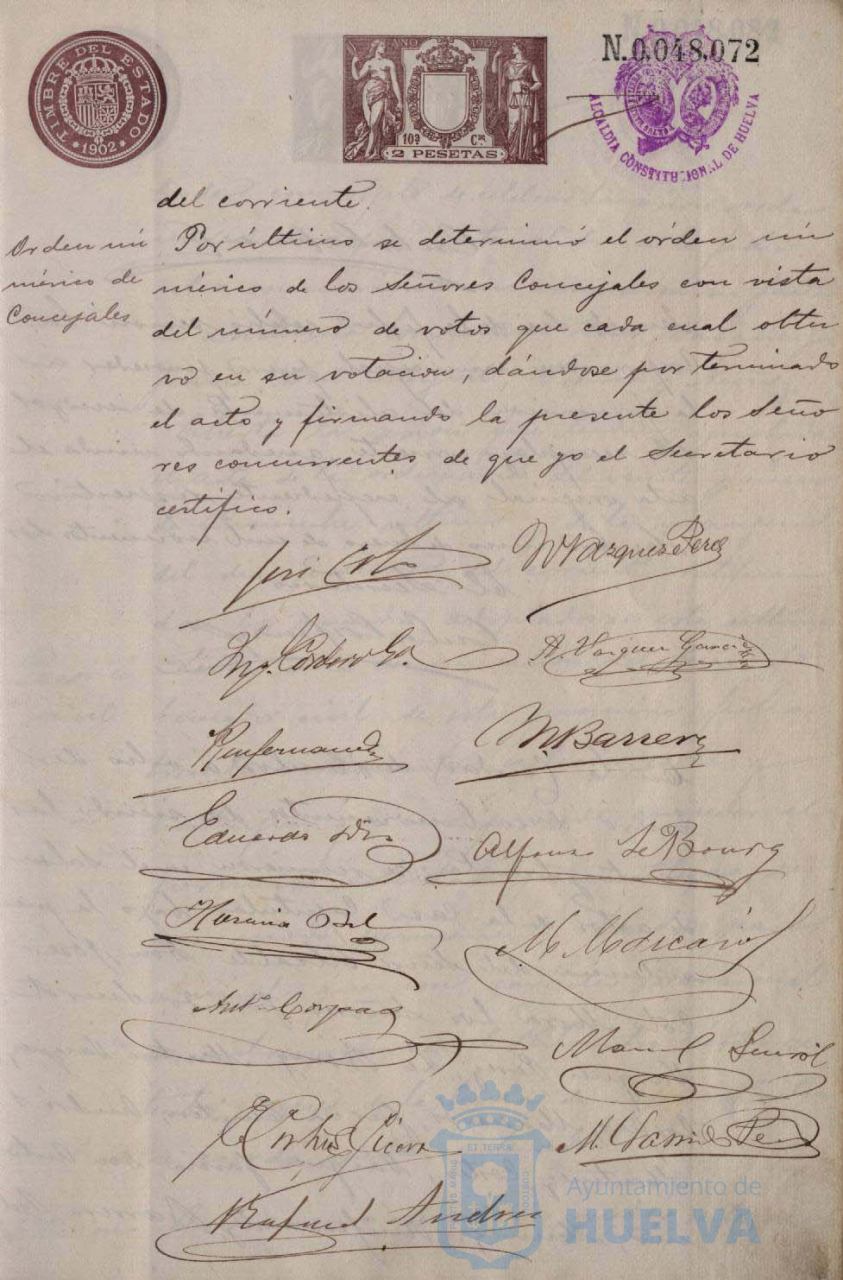 TIMBRE DEL ESTADO
1902
AÑO 1902
10ª Cª
2 PESETAS
N.0,048,072
ALCALDIA CONSTITUCIONAL DE HUELVA
del corriente.
Orden nú
mérico de
Concejales
Por último se determinó el órden nú
mérico de los Señores Concejales con vista
del número de votos que cada cual obtu
vo en su votacion, dándose por terminado
el acto y firmando la presente los Seño
res concurrentes de que yo el Secretario
certifico.
José
Vazquez Perez
Cordero
A. Vazquez Garcia
M Barrera
Eduardo
Alfonso Le Bourg
M Mascarós
Antº
Manuel
E Cortes
M.
Rafael Andres
Ayuntamiento de
HUELVA